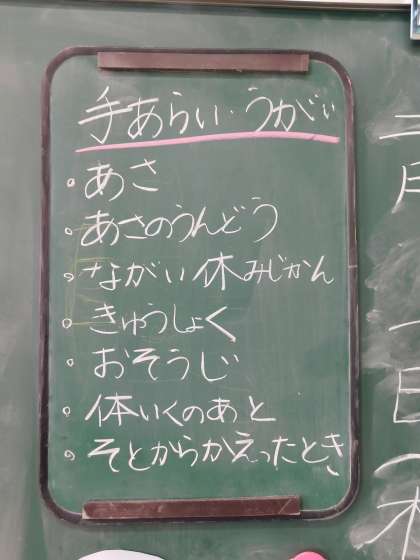 手あらい・うがい
。あさ
。あさのうんどう
。ながい休みじかん
。きゅうしょく
。おそうじ
。体いくのあと
。そとからかえったとき
二月
一日